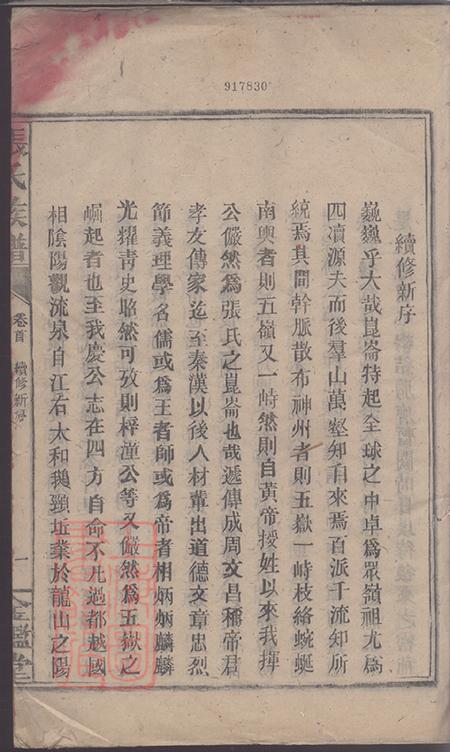 917830
續修新序
巍巍乎大哉崑崙特起全球之中卓為眾嶺祖尤為
四瀆源夫而後羣山萬壑知自來焉百派千流知所
統焉其間幹脈散布神州者則五嶽一峙枝絡蜿蜒
南輿者則五嶺又一峙然則自黃帝授姓以來我揮
公儼然為張氏之崑崙也哉遞傳成周文昌稱帝君
孝友傳家迄至秦漢以後人材輩出道德文章忠烈
節義理學名儒或為王者師或為帝者相炳炳麟麟
光耀青史昭然可攷則梓潼公等又儼然為五嶽之
崛起者也至我慶公志在四方自命不凡過都越國
相陰陽觀流泉自江右太和鵝頸坵業於龍山之陽
張氏族譜
卷首
續修新序
一
金鑑堂